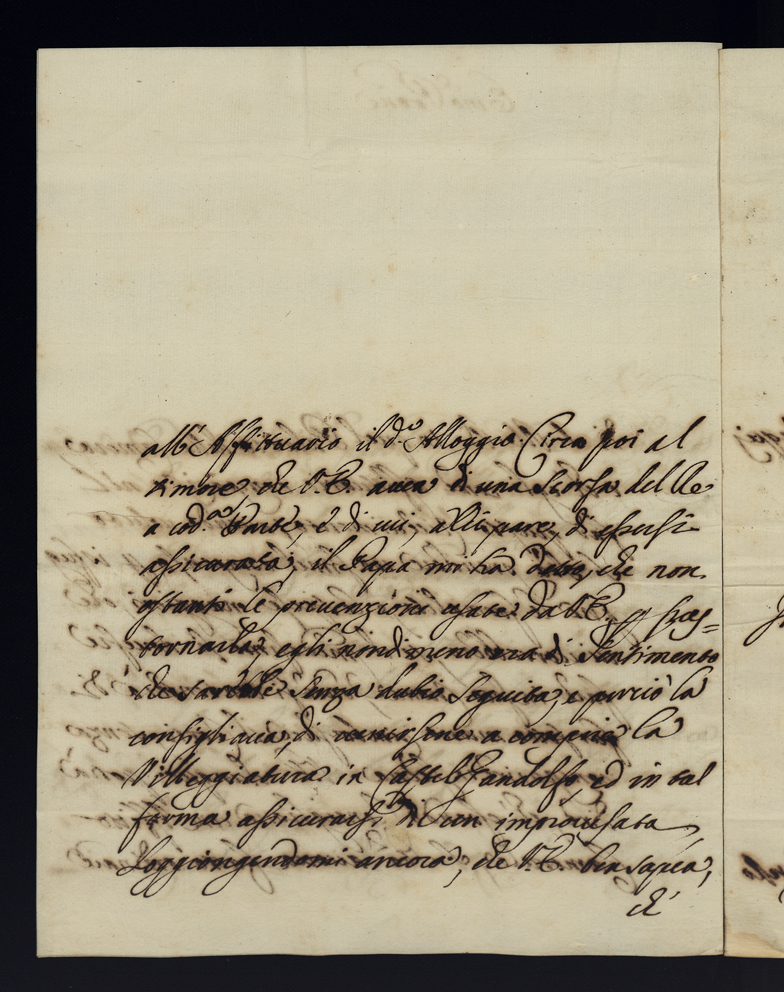 all'Affittuario il d.º Alloggio. Circa poi al
timore che V.E. avea di una Scorsa del Re
a cod.ª Parte, e di cui, a lei pare, di essersi
assicurata; il Papa mi ha detto, che non
ostanti le prevenzioni usate da V.E. p fras=
tornarla, egli nondimeno era di Sentimento
che sarebbe senza dubio seguita, e perciò la
consigliava, di venirsene a compire la
Villeggiatura in Castel Gandolfo, ed in tal
forma assicurarsi di un improvisata,
soggiongendomi ancora, che V.E. ben sapea,
ch'